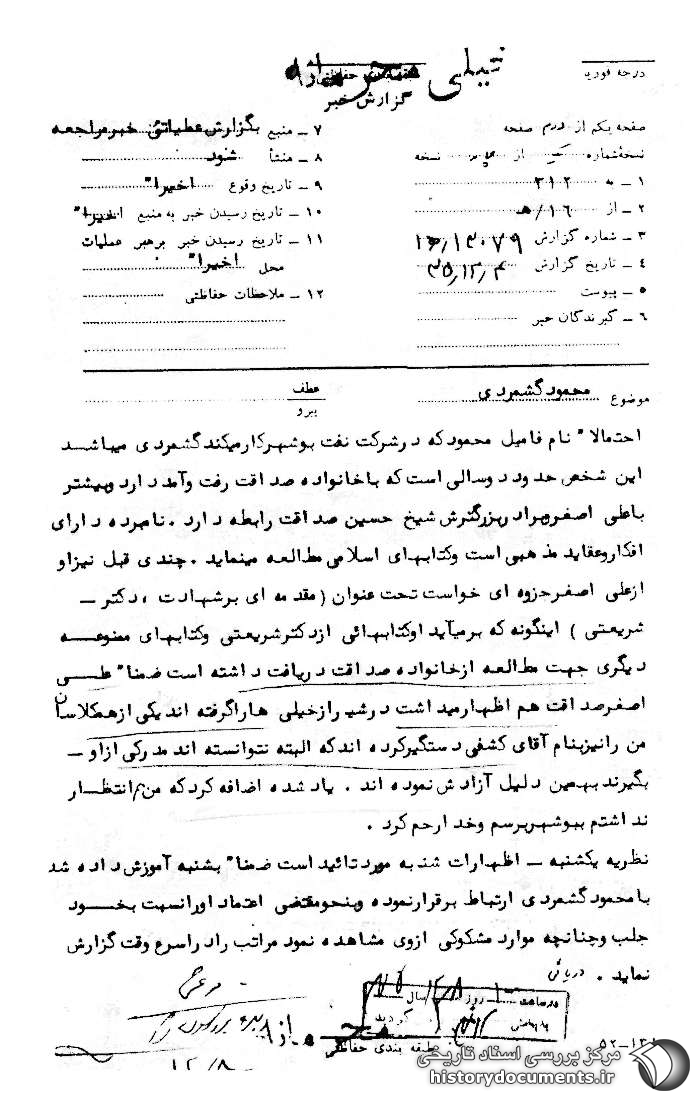 خیلی محرمانه
درجه فوریت
طبقه‌بندی حفاظتی
گزارش خبر
صفحه یکم از دوم صفحه
نسخه شماره از نسخه
۱ – به ۳۱۲
۲ – از ۱۶/هـ
۳ – شماره گزارش ۱۶٫۱۳۰۷۹
۴ – تاریخ گزارش ۳۵٫۱۲٫۴
۵ – پیوست
۶ – گیرندگان خبر
۷ – منبع بگزارش عطیاتی خبر مراجعه
۸ – منشأ شود
۹ – تاریخ وقوع اخیرا"
۱۰ – تاریخ رسیدن خبر به منبع اخیرا"
۱۱ – تاریخ رسیدن خبر برهبر عملیات
محل اخیرا"
۱۲ – ملاحظات حفاظتی
موضوع محمود گشمردی
عطف
پیرو
احتمالا" نام فامیل محمود که در شرکت نفت بوشهر کار میکند گشمردی میباشد
این شخص حدود دوسالی است که با خانواده صداقت رفت و آمد دارد و بیشتر
با علی اصغر و برادر بزرگترش شیخ حسین صداقت رابطه دارد . نامبرده دارای
افکار و عقاید مذهبی است و کتابهای اسلامی مطالعه مینماید . چندی قبل نیز او
از علی اصغر جزوه ای خواست تحت عنوان ( مقدمه ای بر شهادت ، دکتر –
شریعتی ) اینگونه که برمیآید او کتابهائی از دکتر شریعتی و کتابهای ممنوعه
دیگری جهت مطالعه از خانواده صداقت دریافت داشته است ضمنا" علی
اصغر صداقت هم اظهار میداشت در شیراز خیلی ها را گرفته اند یکی از همکلاسان
من را نیز بنام آقای کشفی دستگیر کرده اند که البته نتوانسته اند مدرکی از او –
بگیرند بهمین دلیل آزادش نموده اند . یاد شده اضافه کرد که من هم انتظار
نداشتم ببوشهر برسم و خدا رحم کرد .
نظریه یکشنبه – اظهارات شنبه مورد تائید است ضمنا" بشنبه آموزش داده شد
با محمود گشمردی ارتباط برقرار نموده و بنحو مقتضی اعتماد او را نسبت بخود
جلب و چنانچه موارد مشکوکی از وی مشاهده نمود مراتب را در اسرع وقت گزارش
نماید . دریائی
در ساعت روز سال
گردید
محرمانه
طبقه بندی حفاظتی
۱۲/۸
۵۲–۱۳
مرکز بررسی اسناد تاریخی
historydocuments.ir